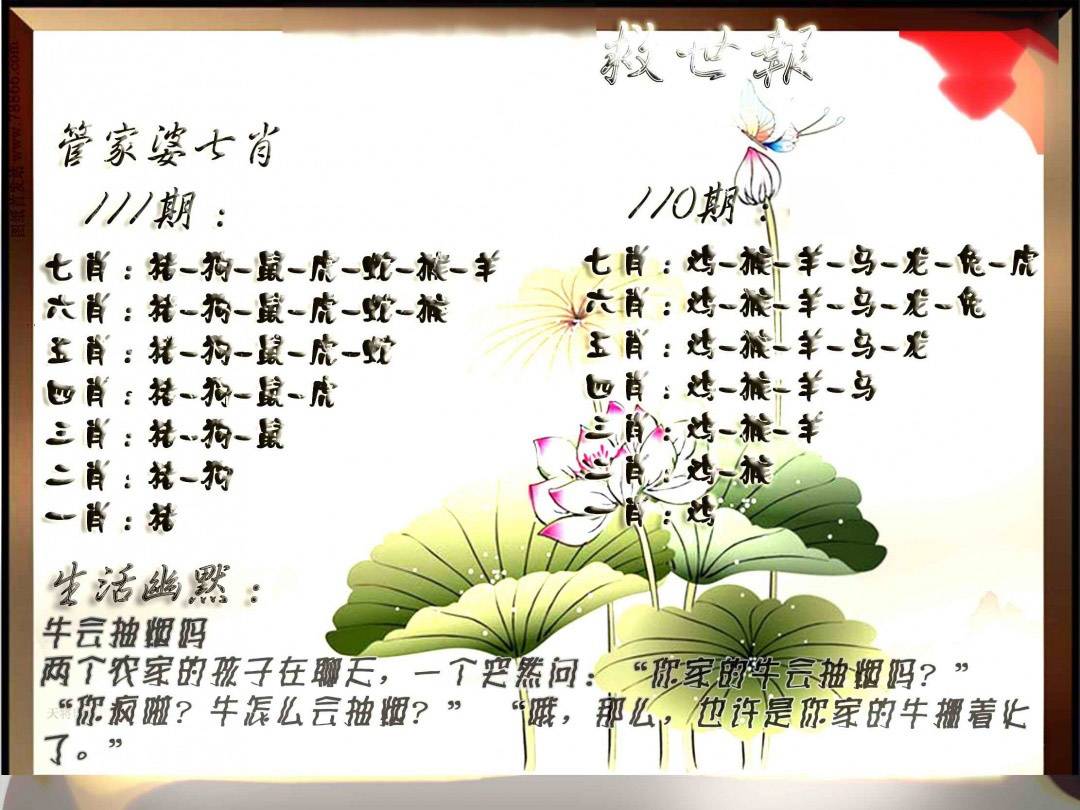 救世報
管家婆七肖
111期：
七肖：猪-狗-鼠-虎-蛇-猴-羊
六肖：猪-狗-鼠-虎-蛇-猴
五肖：猪-狗-鼠-虎-蛇
四肖：猪-狗-鼠-虎
三肖：猪-狗-鼠
二肖：猪-狗
一肖：猪
110期：
七肖：鸡-猴-羊-马-龙-兔-虎
六肖：鸡-猴-羊-马-龙-兔
五肖：鸡-猴-羊-马-龙
四肖：鸡-猴-羊-马
三肖：鸡-猴-羊
二肖：鸡-猴
一肖：鸡
生活幽默：
牛会抽烟吗
两个农家的孩子在聊天，一个突然问：“你家的牛会抽烟吗？”
“你疯啦？牛怎么会抽烟？” “哦，那么，也许是你家的牛棚着火
了。”
图纸首发站 www.78866.com